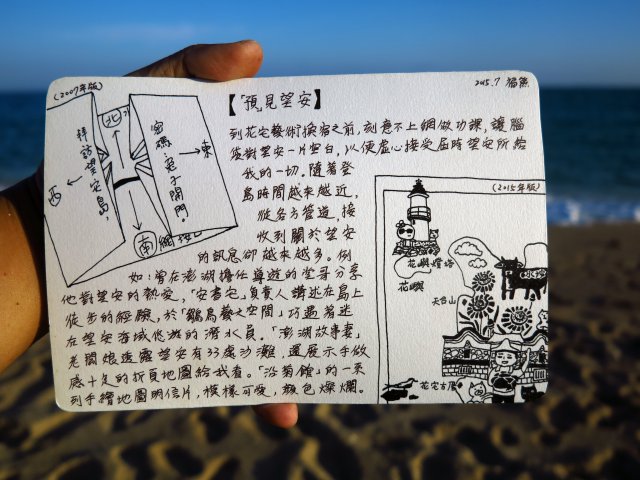 (2007年版)
2015.7 貓熊
【「預」見望安】
北
拜訪望安島，
密碼：兔子開門。
東
西
南
到花宅藝術換宿之前，刻意不上網做功課，讓腦
袋對望安一片空白，以便虛心接受屆時望安所給
我的一切。隨著登
島時間越來越近，
從各方管道，接
收到關於望安
的訊息卻越來越多。例
如：曾在澎湖擔任導遊的堂哥分享
他對望安的熱愛，「安書宅」負責人講述在島上
徒步的經驗，於「鶴鳥藝文空間」巧遇著迷
在望安海域悠遊的潛水員。「澎湖故事妻」
老闆娘透露望安有33處沙灘，還展示手做
感十足的折頁地圖給我看。「沿菊館」的一系
列手繪地圖明信片，模樣可愛，顏色燦爛。
(2015年版)
花嶼燈塔
花嶼
天台山
花宅古厝